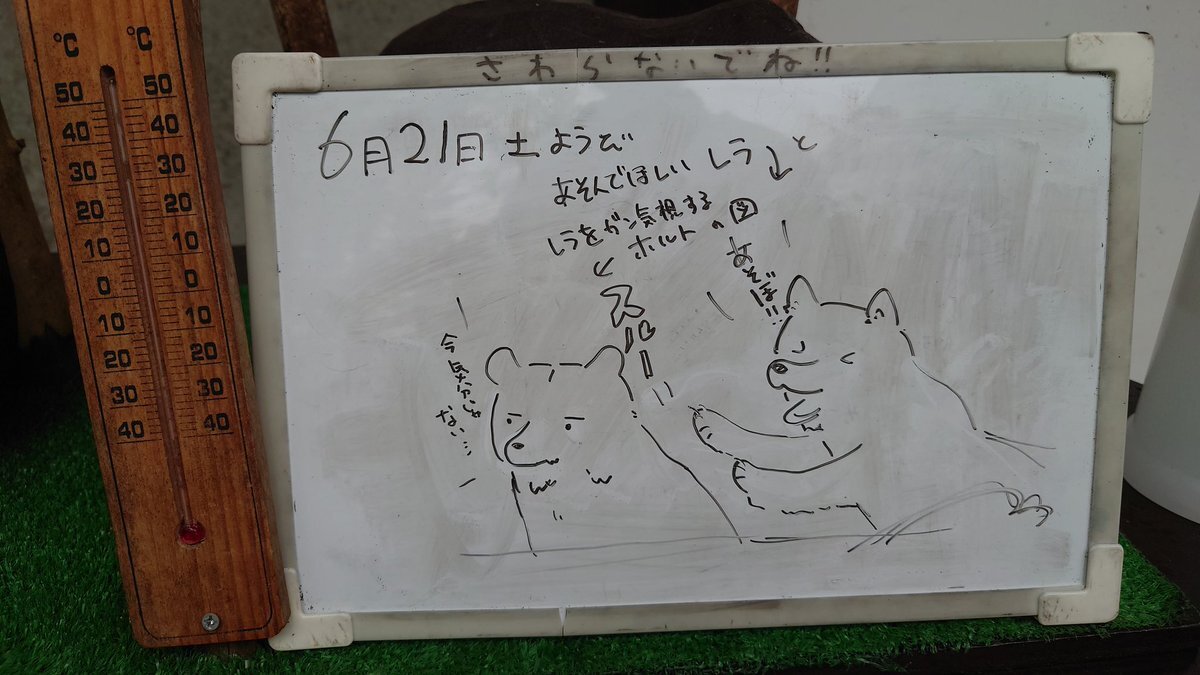 さわらないでね!!
6月21日 土ようび
あそんでほしい レラ と
レラをガン気視する
ホルトの図
あそぼ!!
スルー
今気分じゃ
ない…
°C °C
50 50
40 40
30 30
20 20
10 10
0 0
10 10
20 20
30 30
40 40